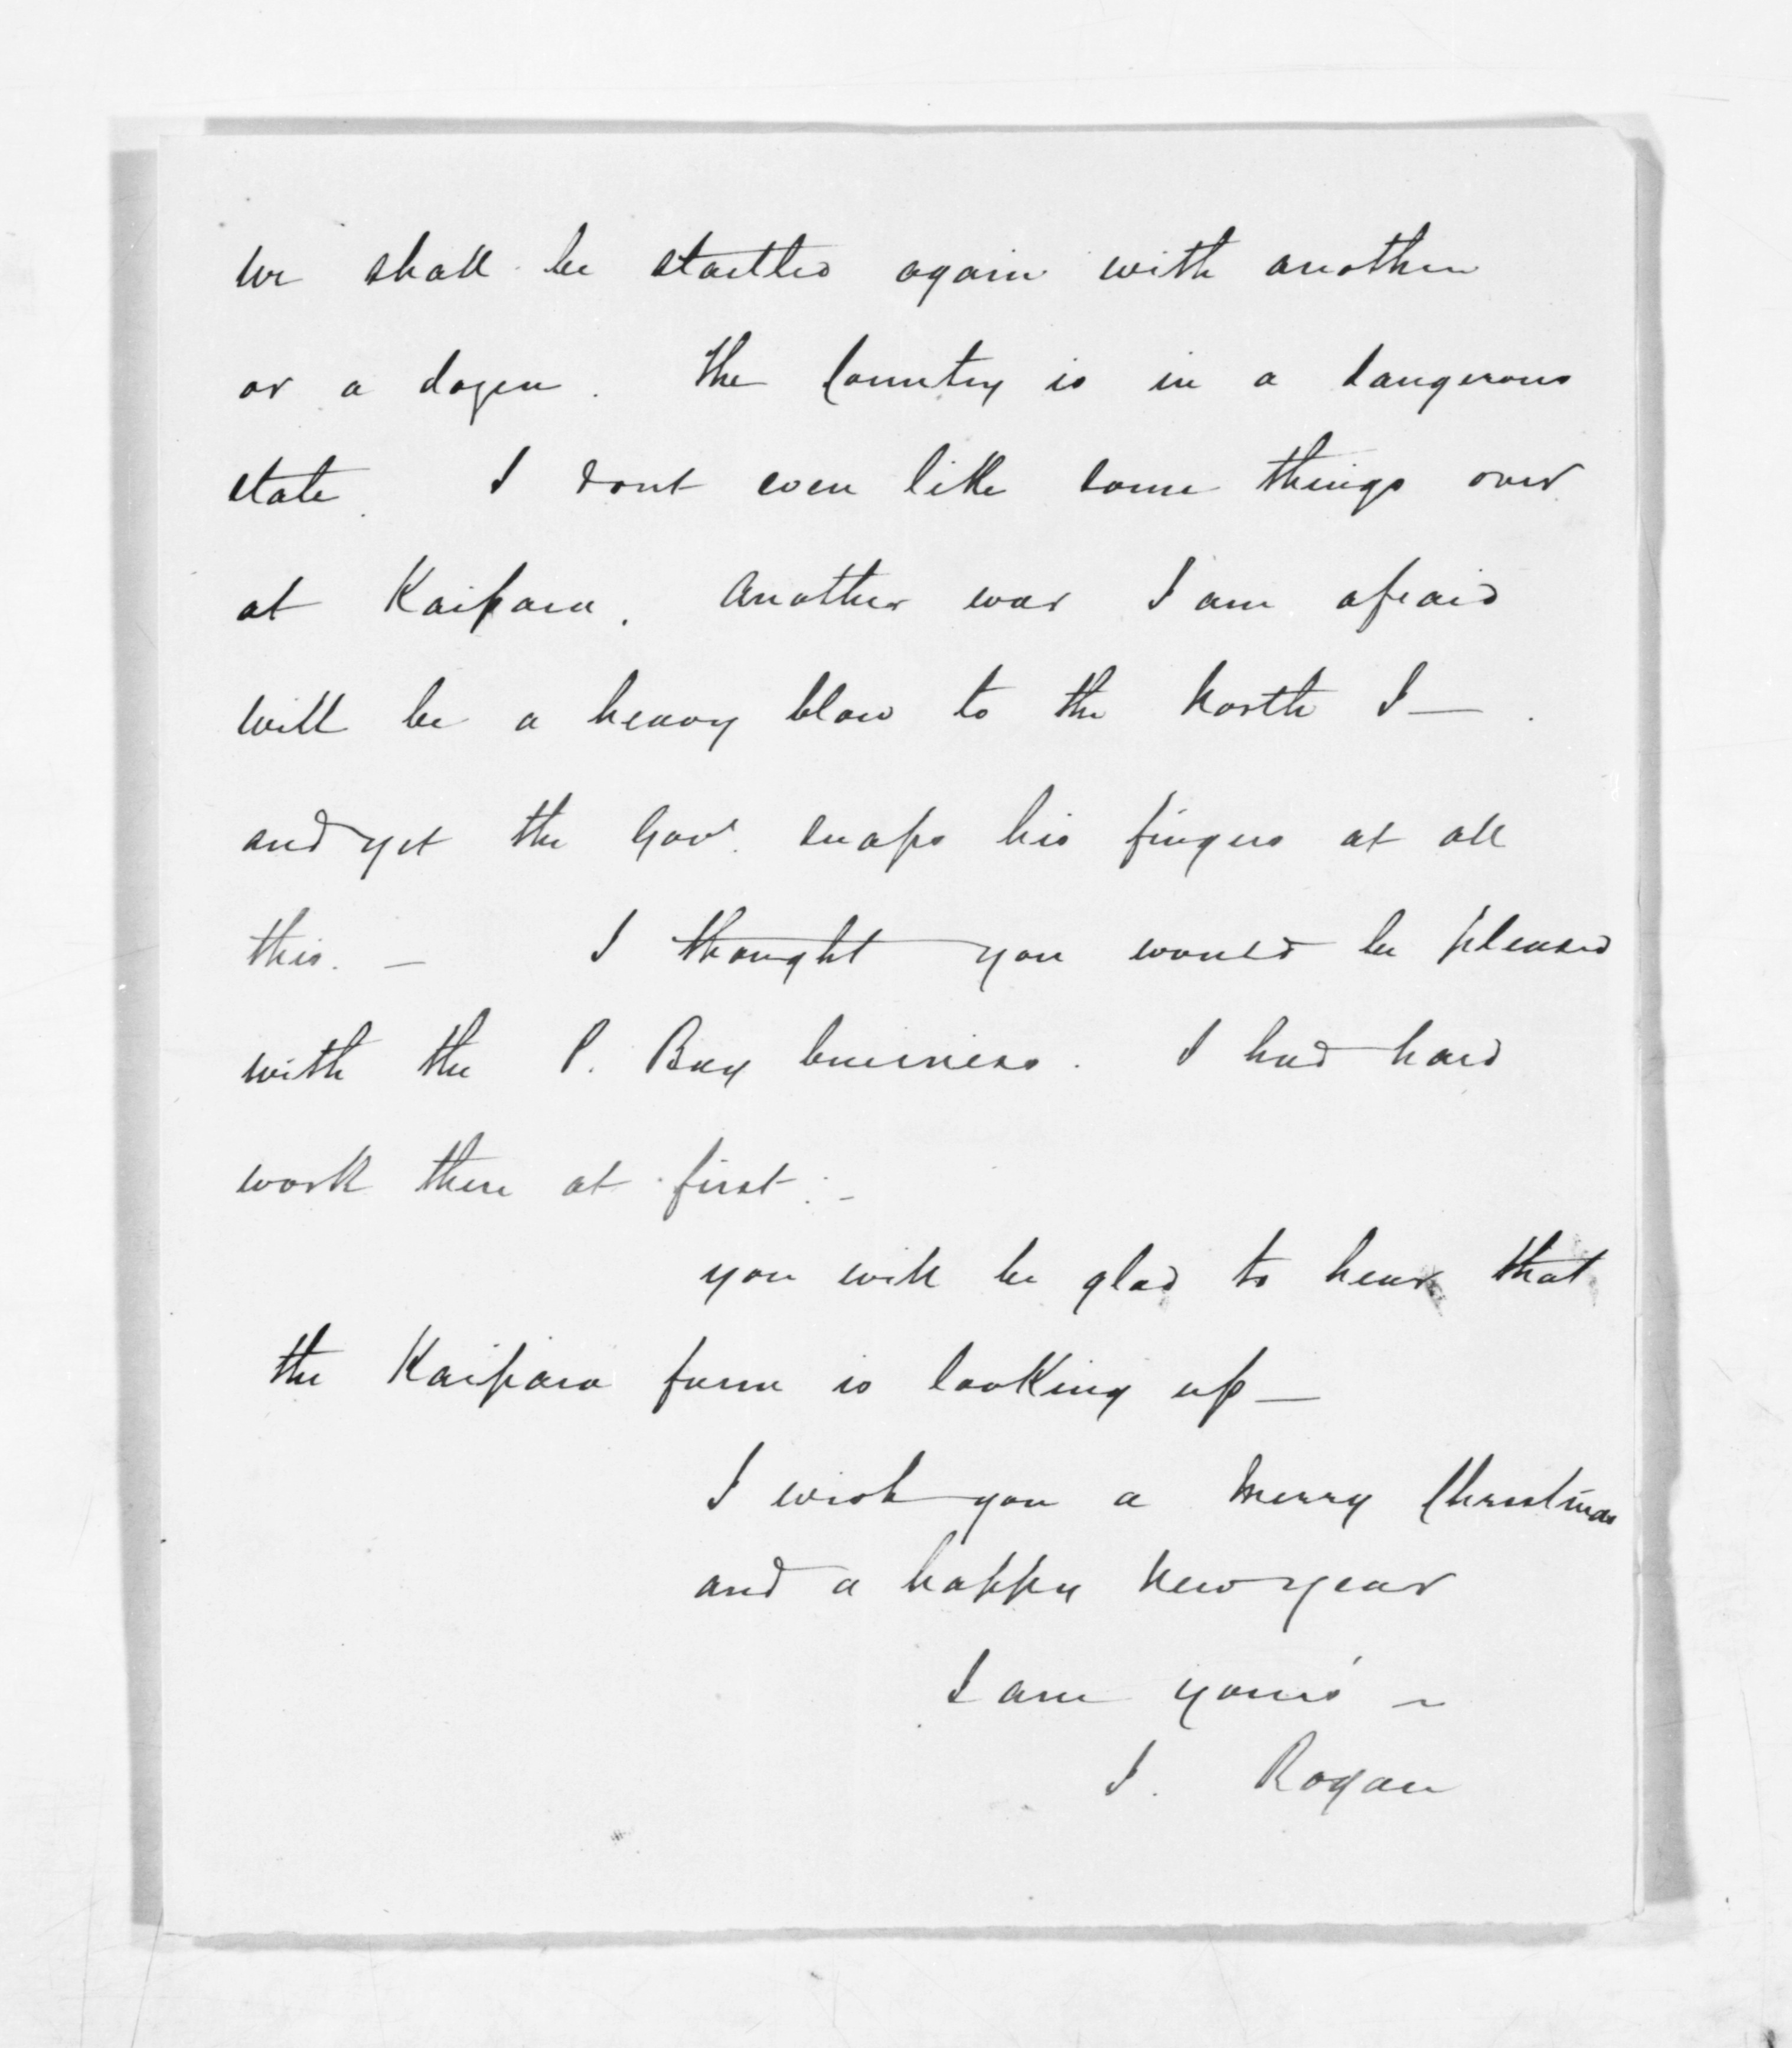 We shall be startled again with another
or a dozen. The Country is in a dangerous
state. I dont even like some things over
at Kaipara. Another war I am afraid
will be a heavy blow to the North I —.
and yet the Govr. snaps his fingers at all
this. — I thought you would be pleased
with the P. Bay business. I had hard
work there at first. —
you will be glad to hear that
the Kaipara farm is looking up —
I wish you a Merry Christmas
and a happy New year
I am yours ~
J. Rogan